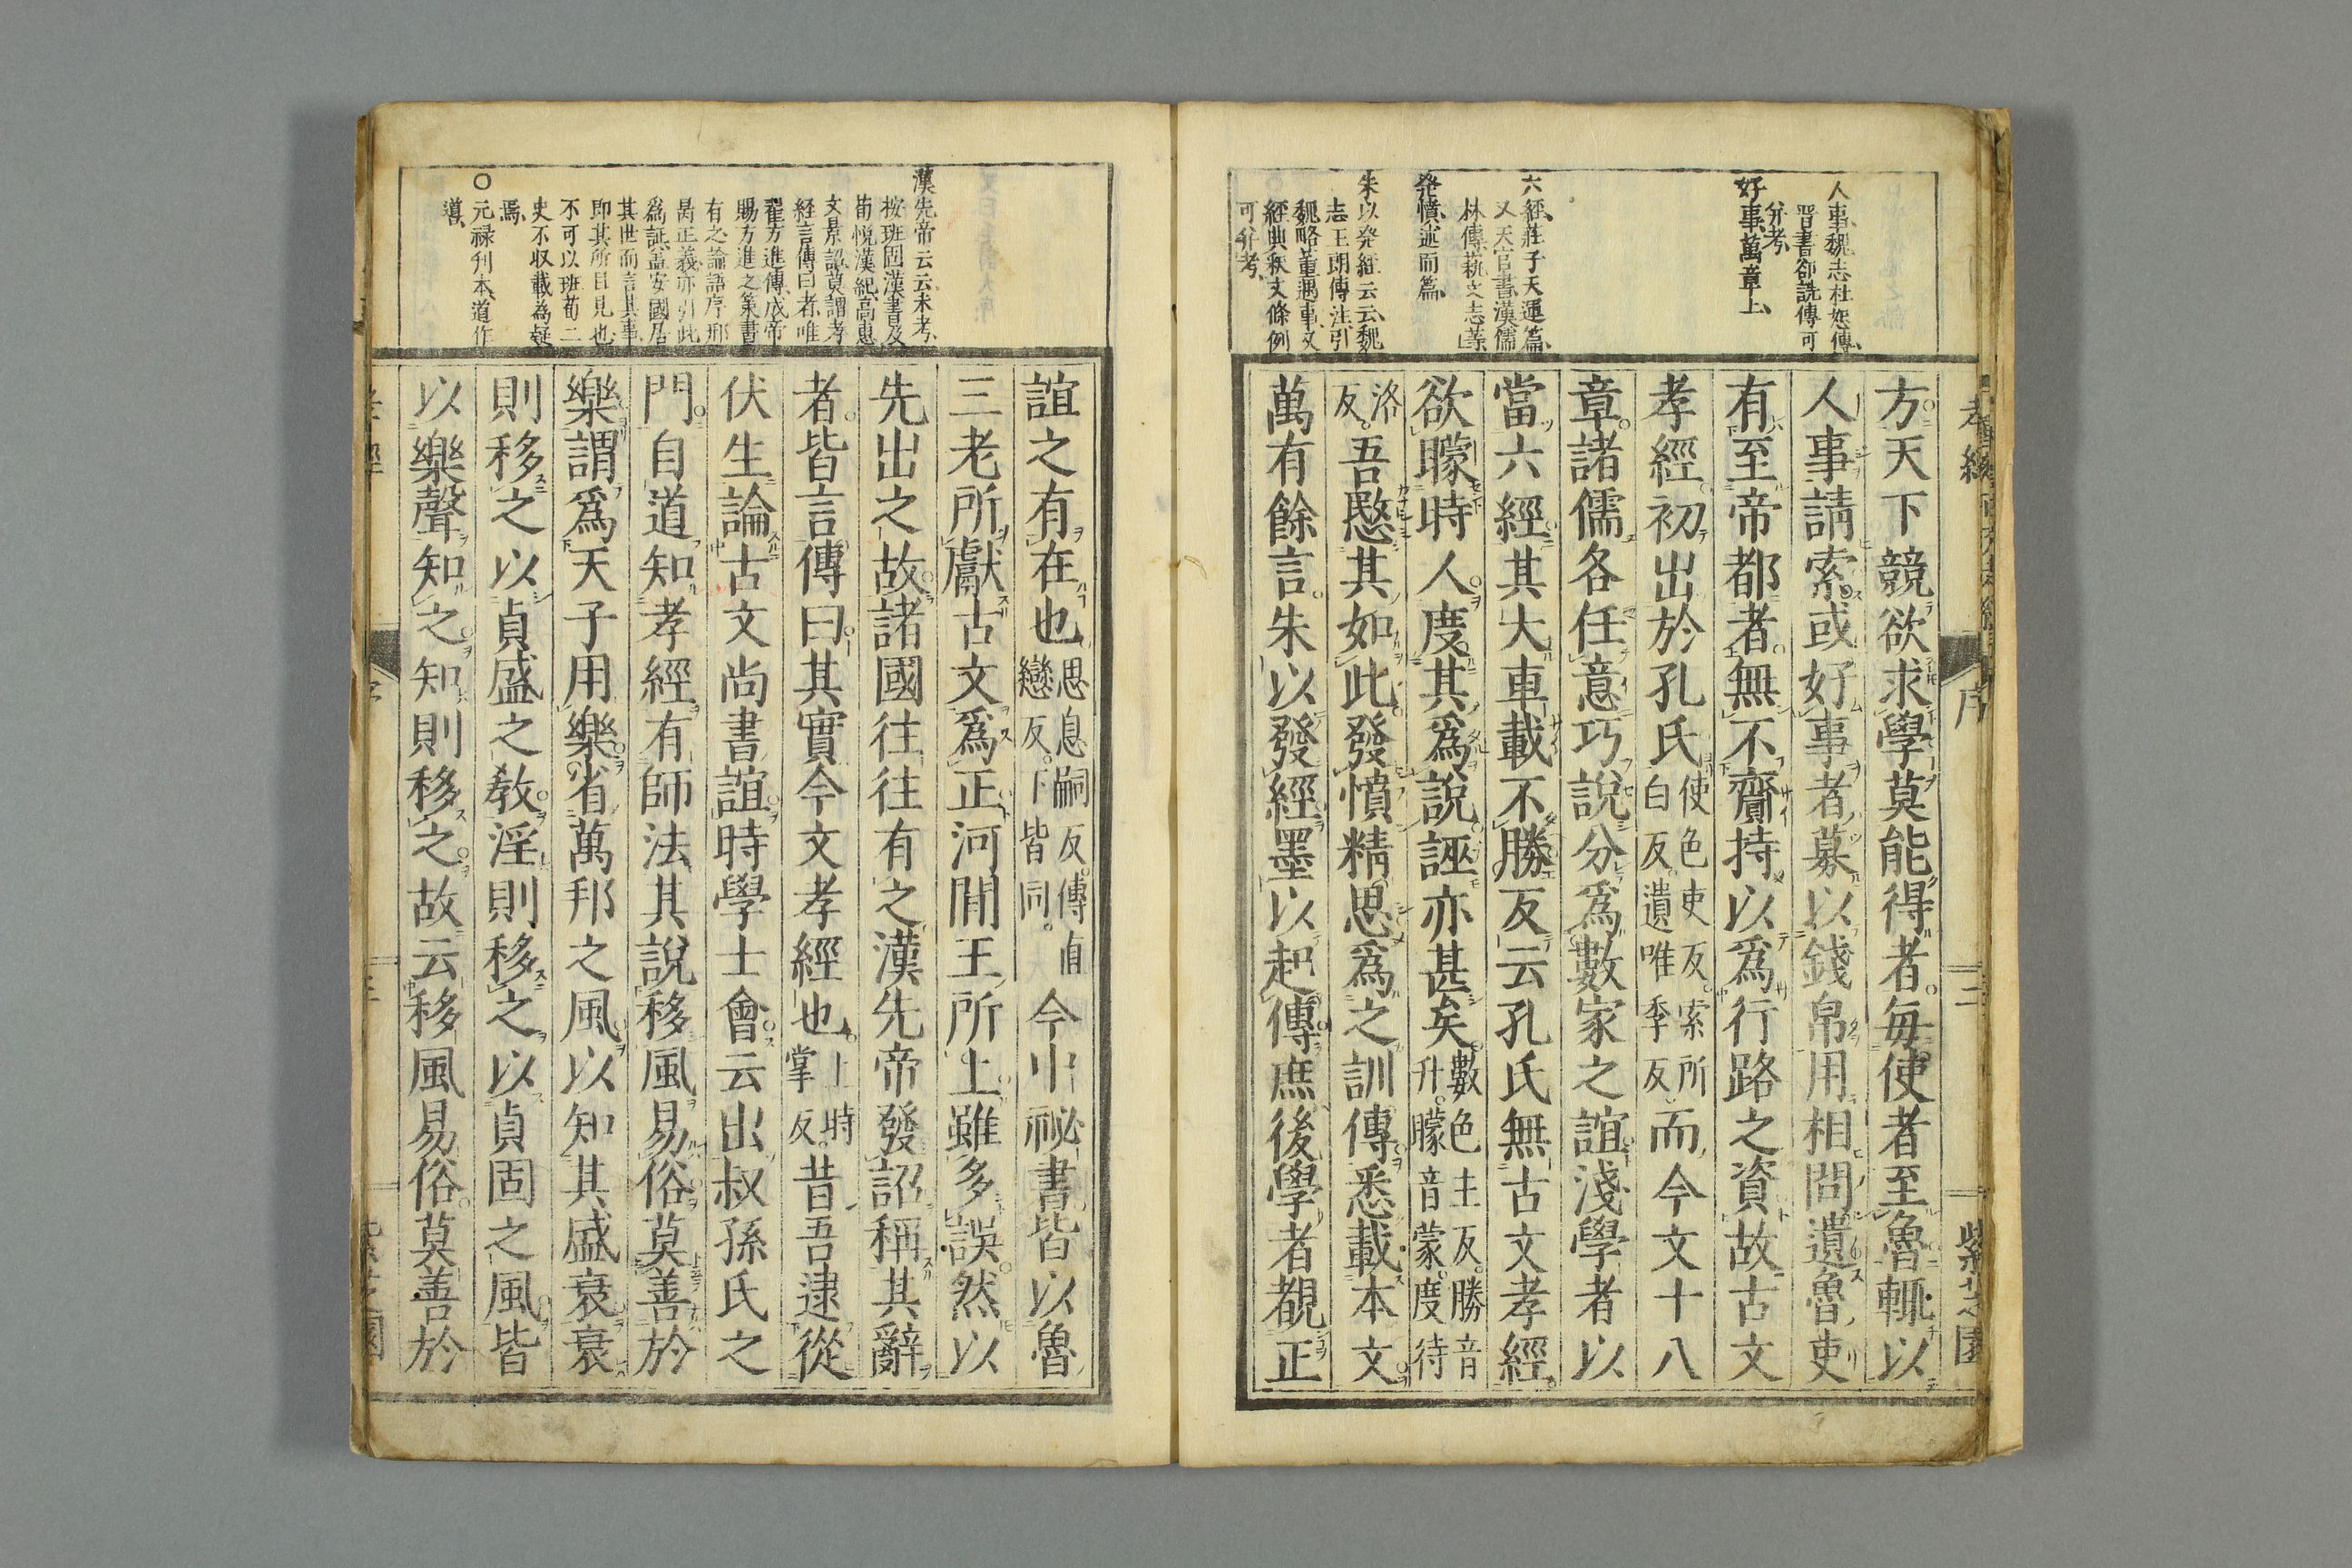 人事、魏志杜恕傳、
晋書郤詵傳可
并考、
好事、萬章上、
六經、莊子天運篇、
又天官書、漢儒
林傳、藝文志等、
発憤、述而篇、
朱以発經云云、魏
志王朗傳注、引
魏略董遇事、又
經典釈文條例
可并考、
方天下競欲求學莫能得者。每使者至魯輒以
人事請索。或好事者募以錢帛用相問遺魯吏
有至帝都者。無不齎持以爲行路之資故古文
孝經初出於孔氏使色吏反。索所白反。遺唯季反。而今文十八
章。諸儒各任意巧說分爲數家之誼淺學者以
當六經。其大車載不勝反云孔氏無古文孝經。
欲矇時人。度其爲說誣亦甚矣。數色主反。勝音升。矇音蒙。度待
洛反。吾愍其如此。發憤精思爲之訓傳。悉載本文。
萬有餘言。朱以發經墨以起傳。庶後學者覩正
孝經
序
三
紫芝園
漢先帝云云、未考、
按班固漢書及
荀悅漢紀、高惠
文景詔、莫謂孝
経言傳曰者、唯
翟方進傳、成帝
賜方進之策書
有之、論語序邢
昺正義、亦引此
爲証、蓋安國居
其世而言其事、
即其所目見也、
不可以班荀二
史不収載為疑
焉、
○元禄刋本、道作
導、
誼之有在也思息嗣反。傳直戀反。下皆同。今中祕書皆以魯
三老所獻古文爲正。河間王所上。雖多誤。然以
先出之故。諸國往往有之。漢先帝發詔稱其辭
者。皆言傳曰。其實今文孝經也。上時掌反。昔吾逮從
伏生論古文尚書誼。時學士會。云出叔孫氏之
門。自道知孝經有師法。其說移風易俗。莫善於
樂謂爲天子用樂。省萬邦之風。以知其盛衰衰
則移之以貞盛之敎。淫則移之以貞固之風。皆
以樂聲知之。知則移之。故云移風易俗。莫善於